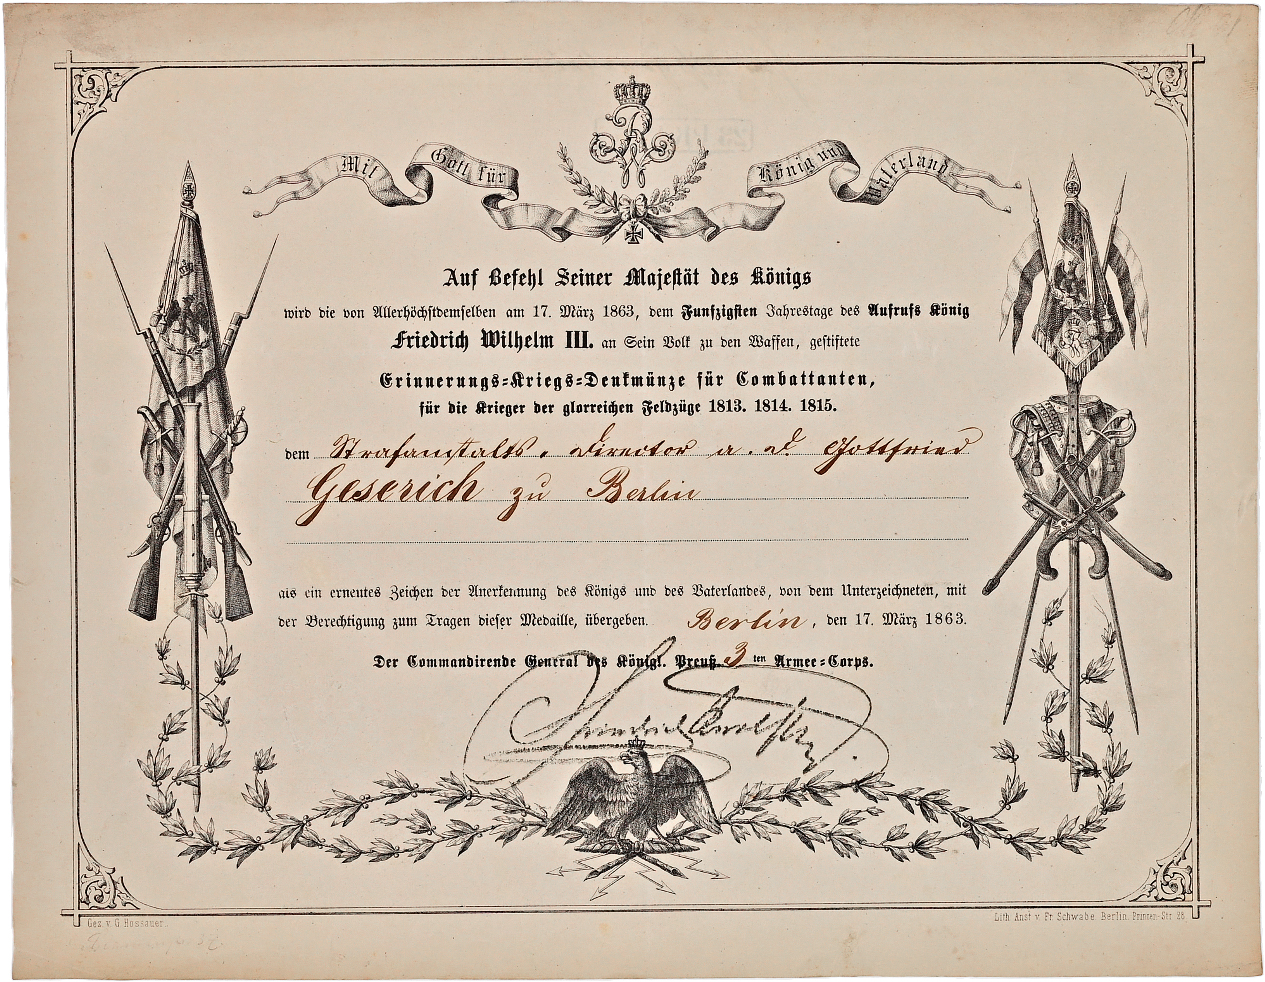 Mit Gott für König und Vaterland
Auf Befehl Seiner Majestät des Königs
wird die von Allerhöchstdemselben am 17. März 1863, dem Funfzigsten Jahrestage des Aufrufs König
Friedrich Wilhelm III. an Sein Volk zu den Waffen, gestiftete
Erinnerungs-Kriegs-Denkmünze für Combattanten,
für die Krieger der glorreichen Feldzüge 1813. 1814. 1815.
dem Strafanstalts-Director a. D. Gottfried
Geserich zu Berlin
als ein erneutes Zeichen der Anerkennung des Königs und des Vaterlandes, von dem Unterzeichneten, mit
der Berechtigung zum Tragen dieser Medaille, übergeben. Berlin, den 17. März 1863.
Der Commandirende General des Königl. Preuß. 3ten Armee-Corps.
Gez. v. G. Hossauer.
Lith. Anst. v. Fr. Schwabe, Berlin, Prinzen-Str. 28